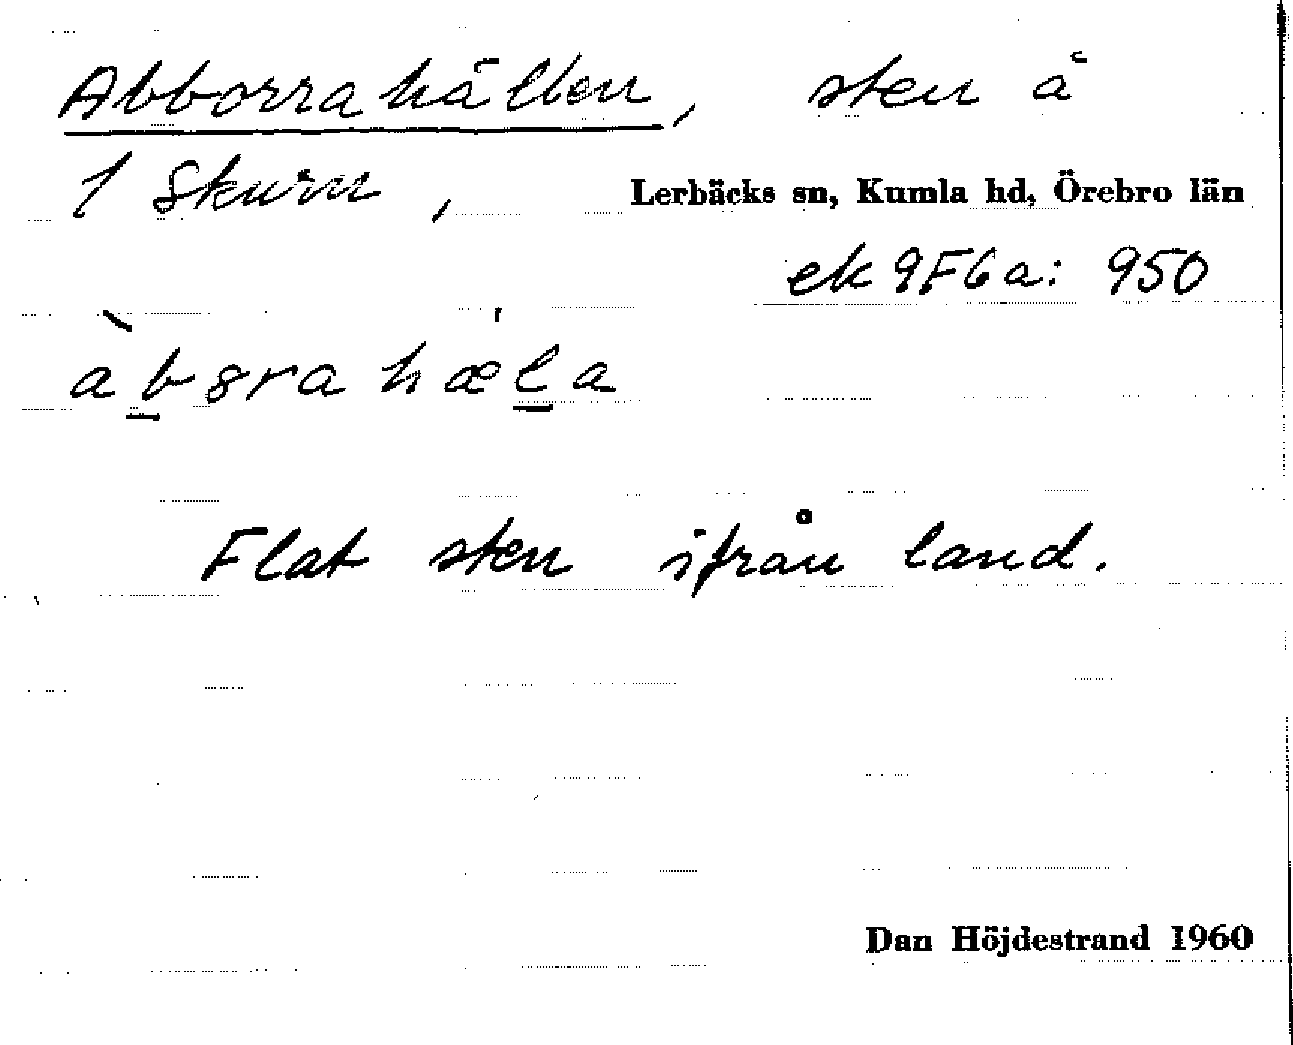 Abborrahällen, sten å
1 Skurn,
Lerbäcks sn, Kumla hd, Örebro län
ek 9F6a: 950
àb̲ȣrahæ'l̲a
Flat sten ifrån land.
Dan Höjdestrand 1960